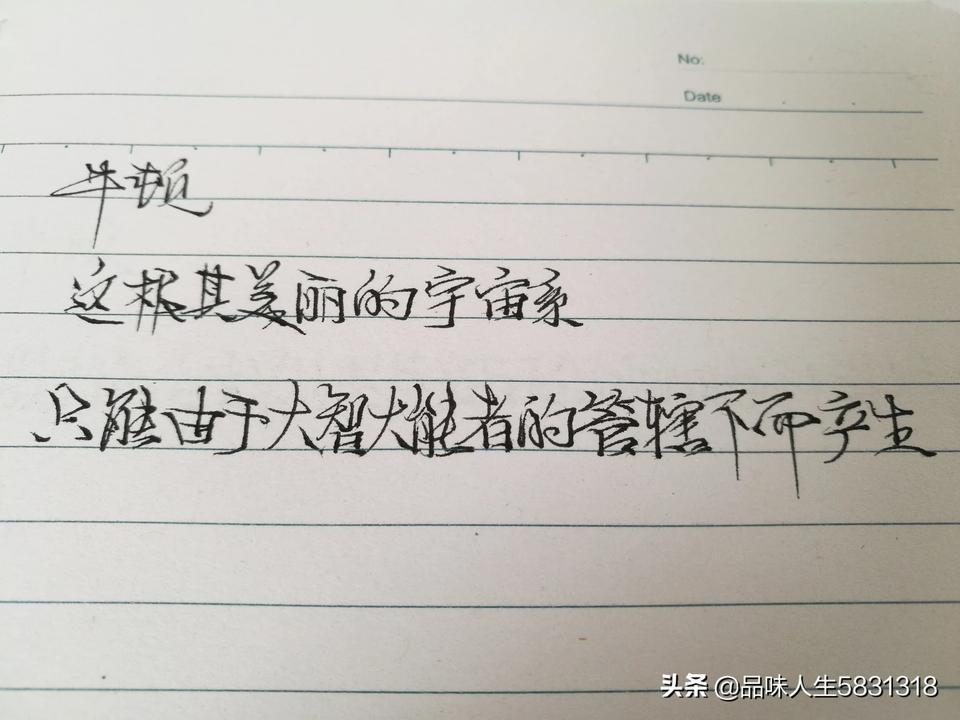 No:
Date
牛顿
这根其美丽的宇宙系
只能由于大智大能者的管辖下而产生
头条 @品味人生5831318